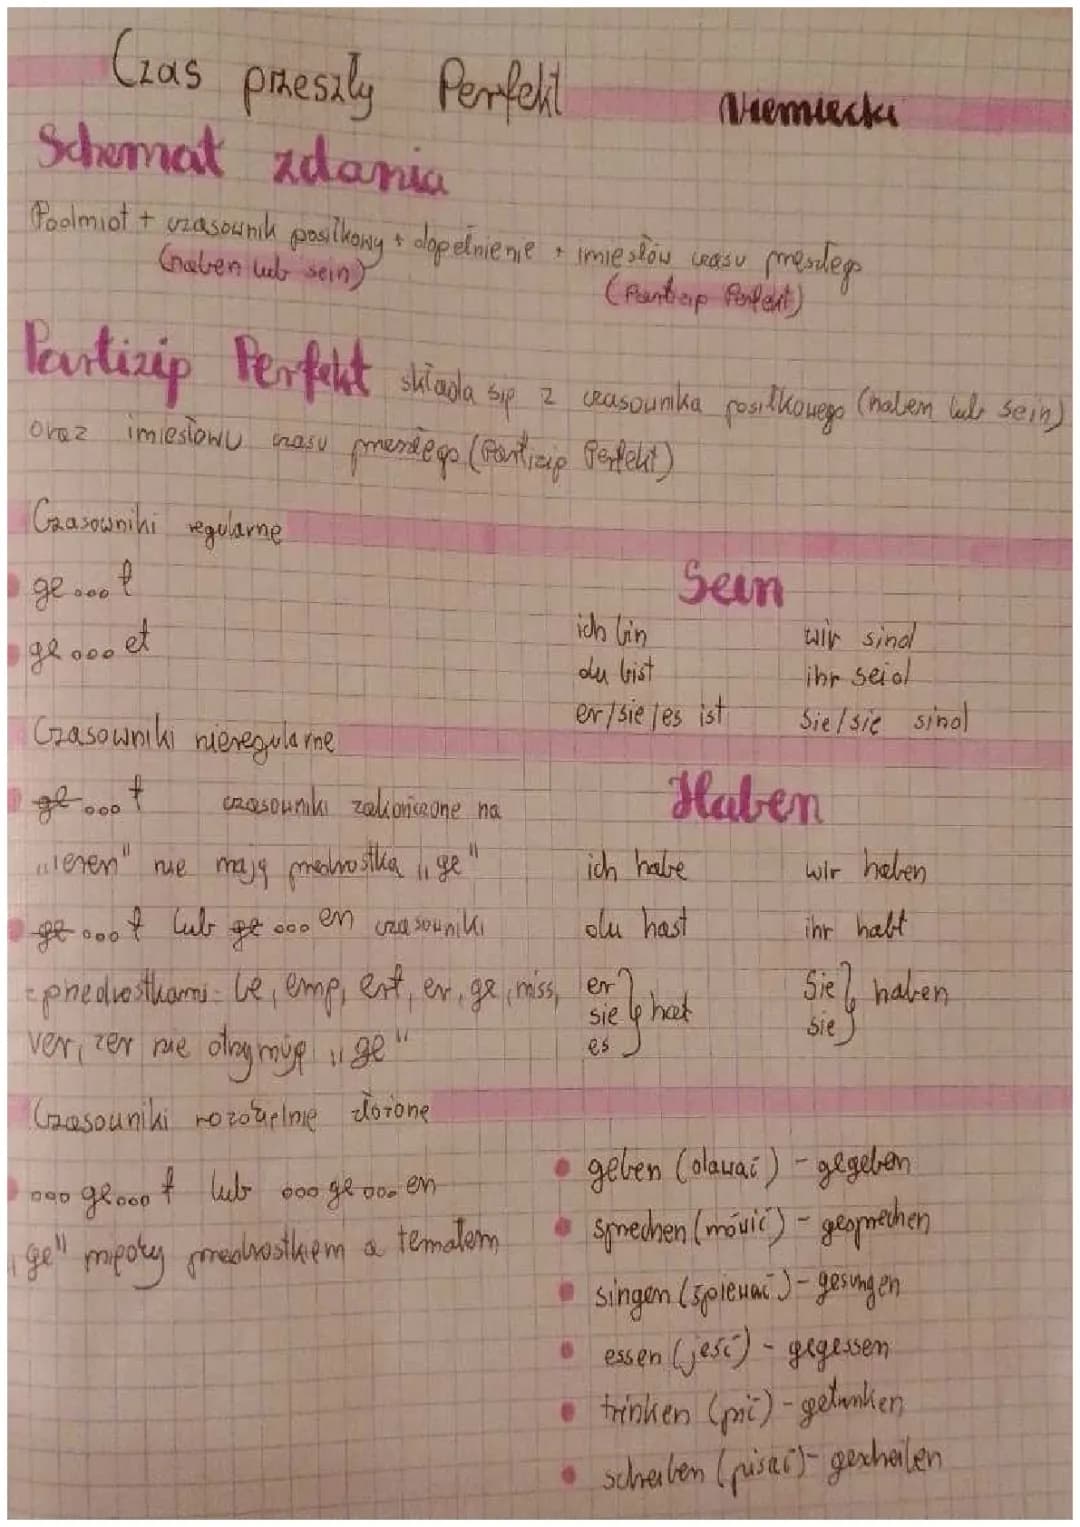 Czas przeszły Perfekt
Niemiecki
Schemat zdania
Podmiot + czasownik posiłkowy + dopełnienie + imiesłów czasu przeszłego
(haben lub sein)
(Partizip Perfekt)
Partizip Perfekt składa się z czasownika posiłkowego (haben lub sein)
oraz imiesłowu czasu przeszłego (Partizip Perfekt)
Czasowniki regularne
ge...t
ge...et
Sein
ich bin
wir sind
du bist
ihr seid
er/sie/es ist
Sie/sie sind
Czasowniki nieregularne
ge...t czasowniki zakończone na
„ieren" nie mają przedrostka „ge"
ge...t lub ge...en czasowniki
z przedrostkami - be, emp, ent, er, ge, miss,
ver, zer nie otrzymują „ge"
Haben
ich habe
wir haben
du hast
ihr habt
er
sie } hat
es
Sie
sie } haben
Czasowniki rozdzielnie złożone
...ge...t lub ...ge...en
„ge" między przedrostkiem a tematem
geben (dawać) - gegeben
sprechen (mówić) - gesprechen
singen (śpiewać) - gesungen
essen (jeść) - gegessen
trinken (pić) - getrunken
schreiben (pisać) -